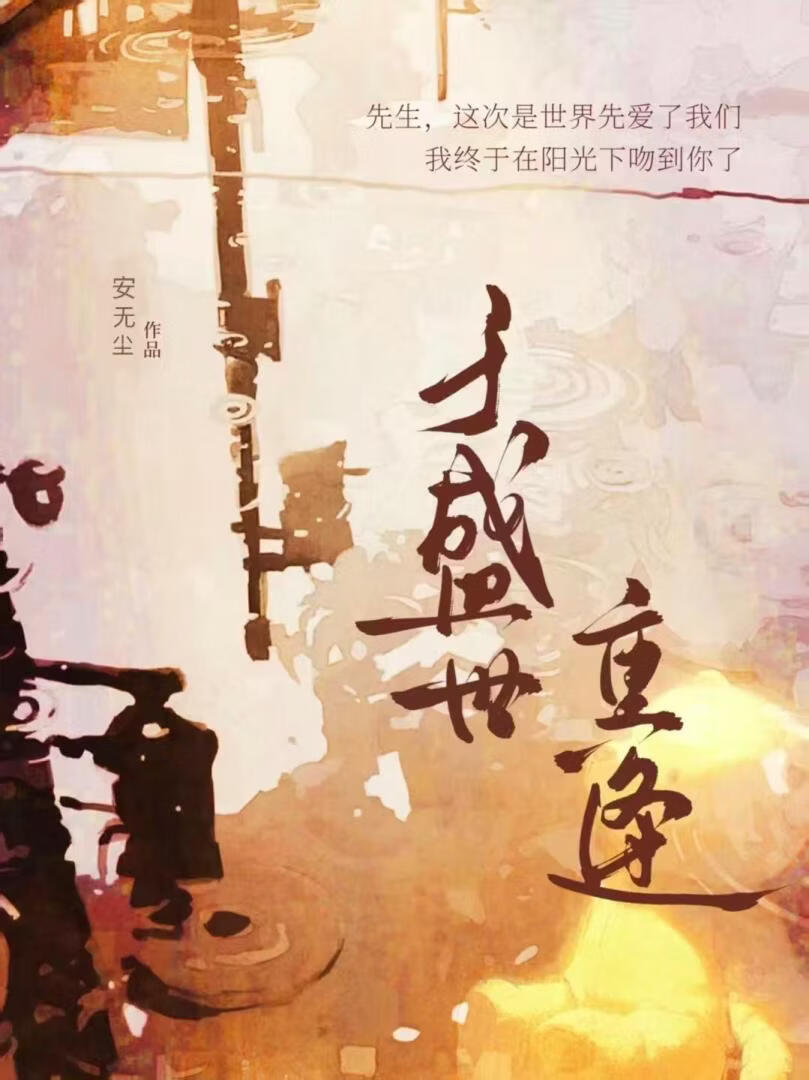 先生，这次是世界先爱了我们
我终于在阳光下吻到你了
安无尘
作品
于盛世
重逢